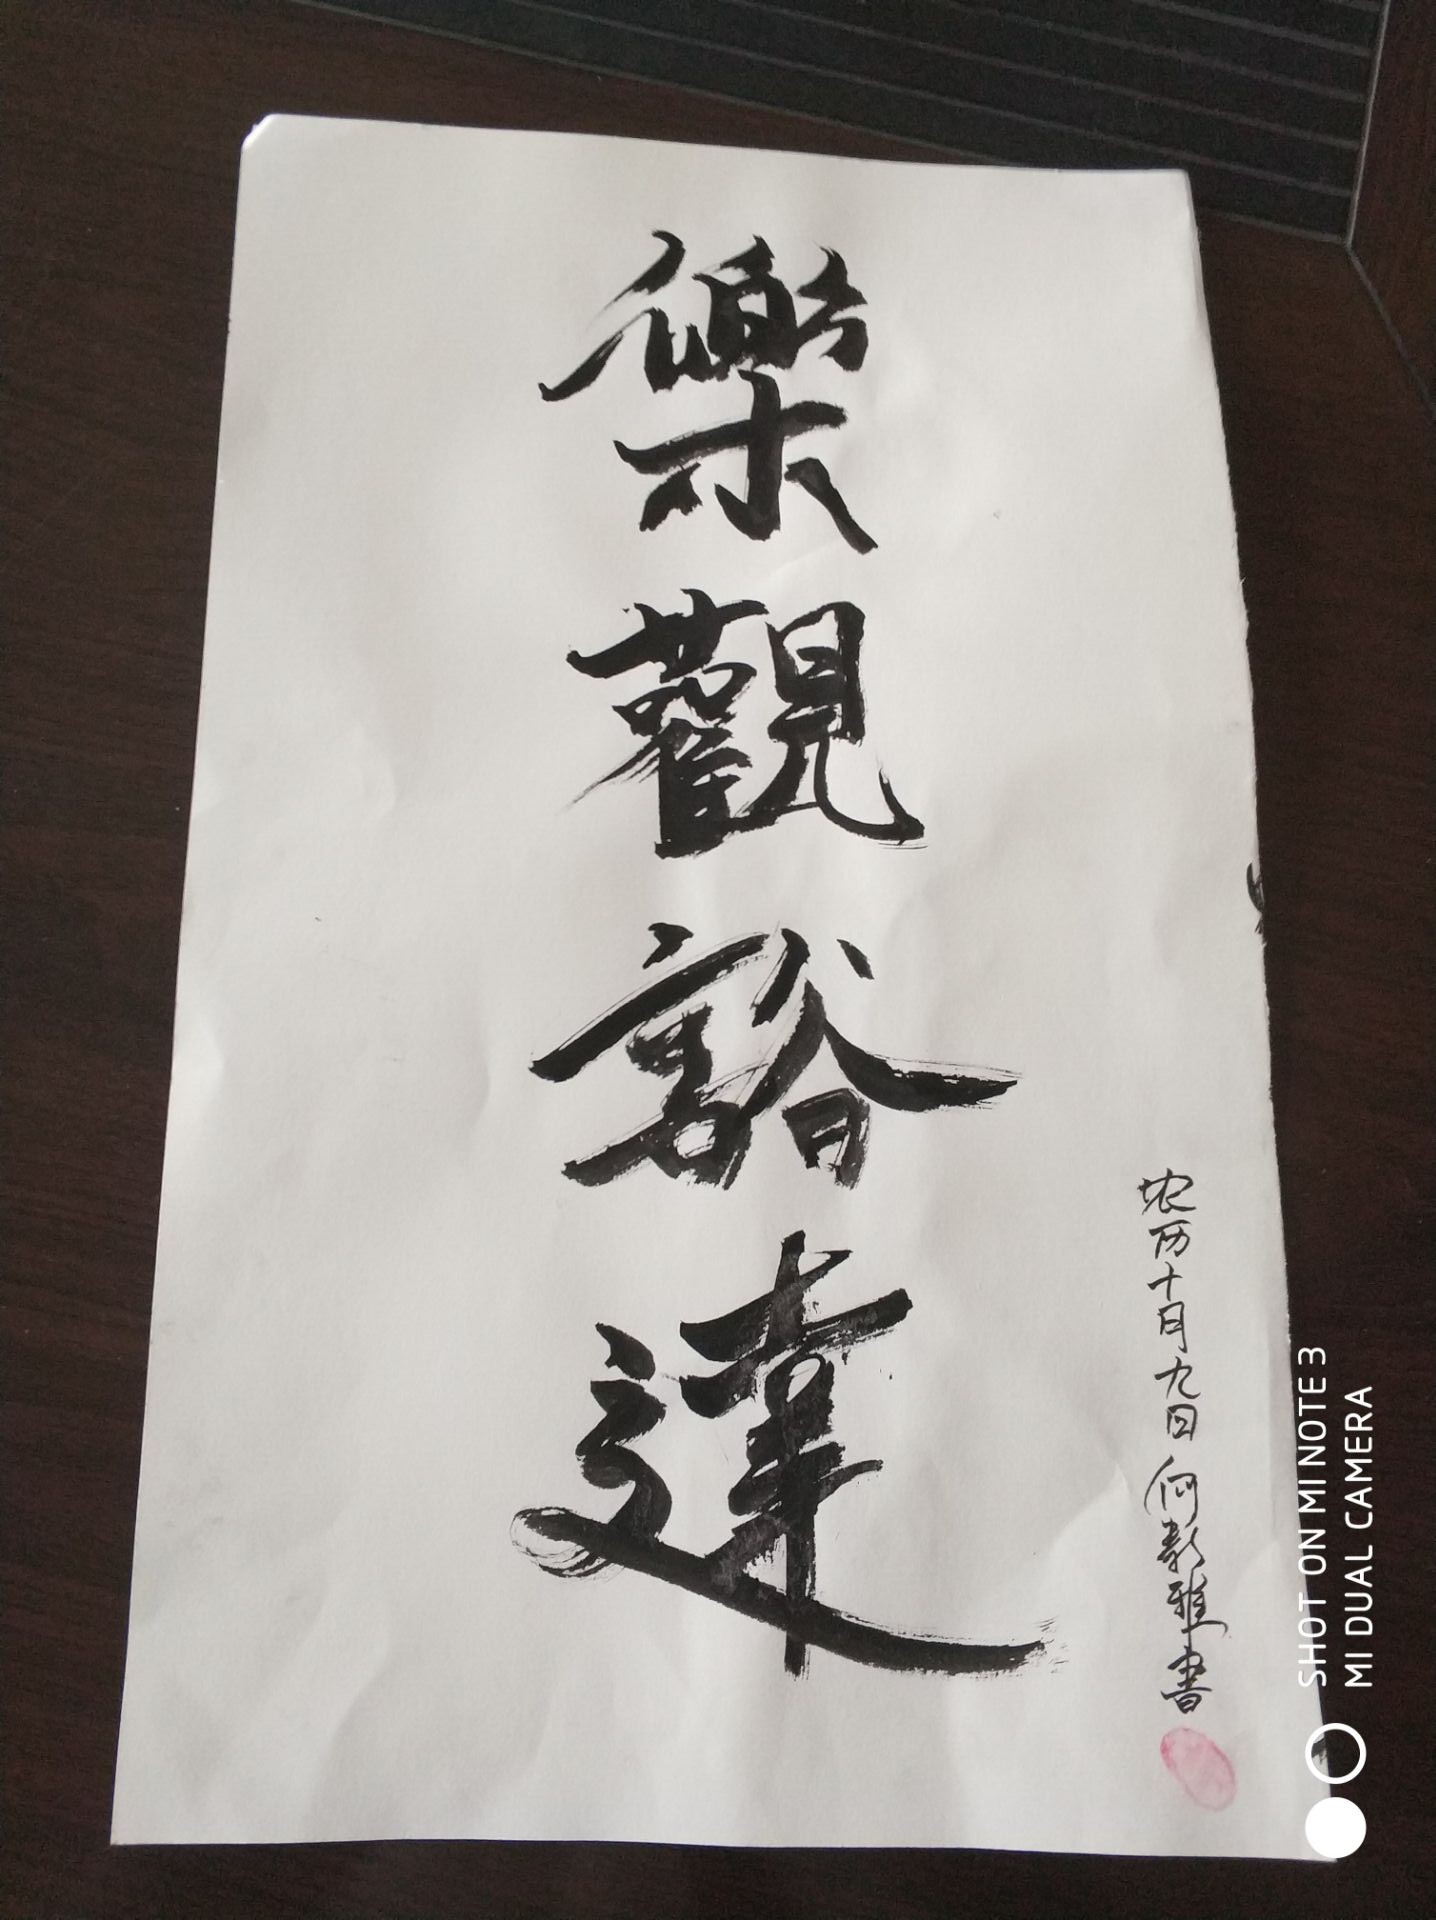 樂觀豁達
农历十月九日 何彭雅書
SHOT ON MI NOTE 3
MI DUAL CAMERA